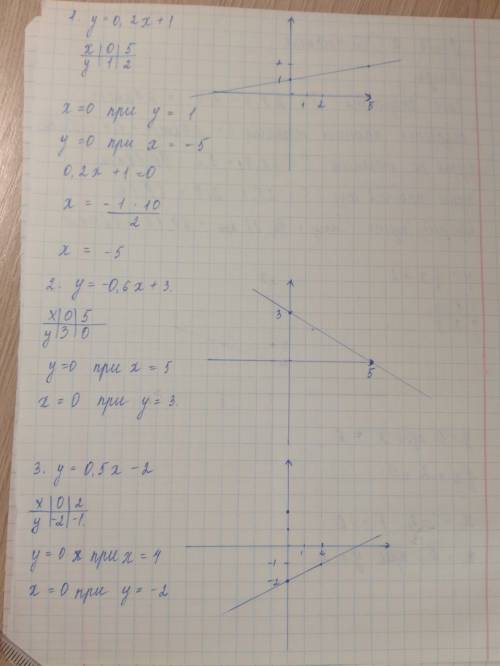 1. y = 0,2x+1
x | 0 | 5
y | 1 | 2
x=0 при y = 1
y=0 при x = -5
0,2x+1=0
x = -1·10
2
x = -5
2
1
1 2 5
2. y = -0,6x+3.
x | 0 | 5
y | 3 | 0
y=0 при x = 5
x = 0 при y = 3.
3
5
3. y = 0,5x-2
x | 0 | 2
y | -2 | -1
y=0 x при x = 4
x = 0 при y = -2
1
-1
-2